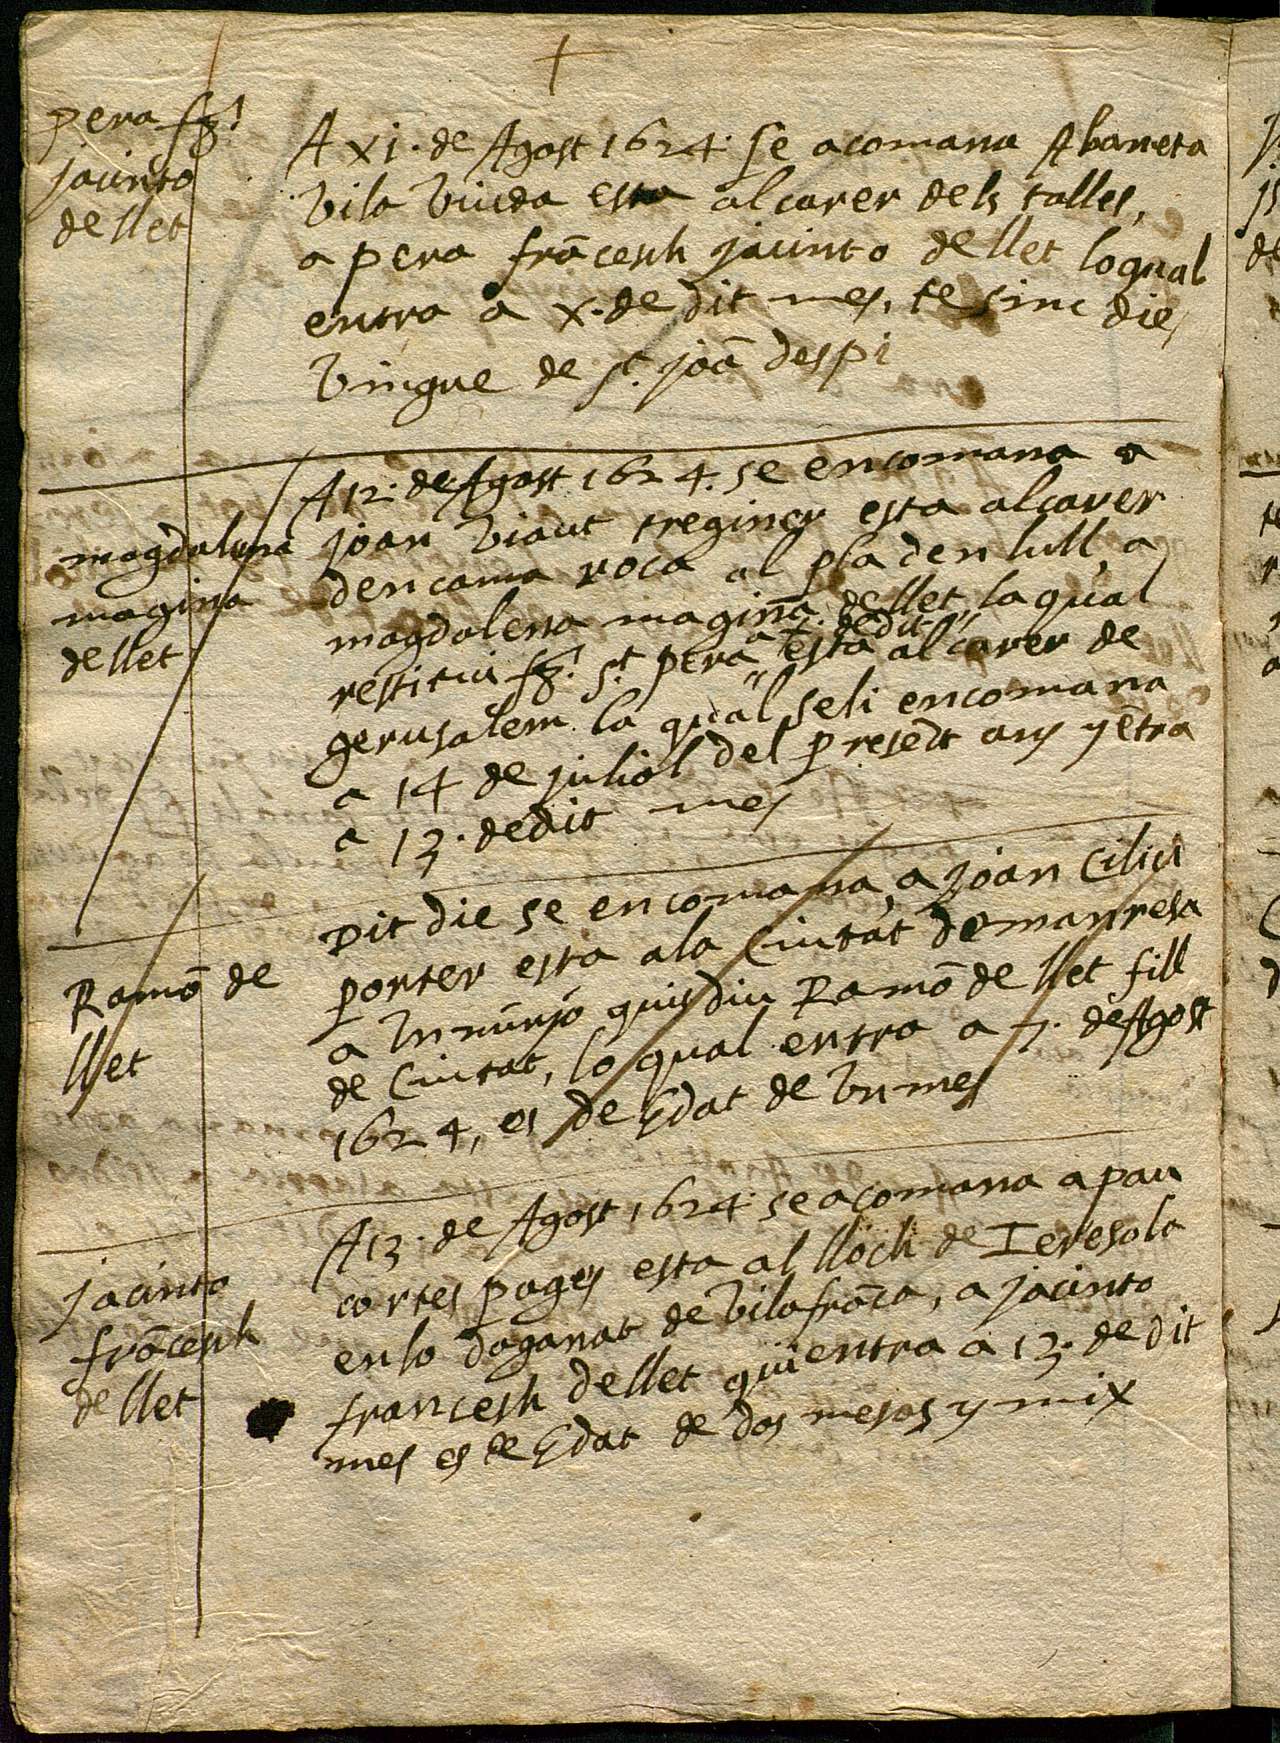 pera fr.
jacinto
de llet
A xi. de Agost 1624. se acomana A barneta
Vila Viuda esta al carer dels talles,
a pera frãcesch jacinto de llet lo qual
entra a x. de dit mes, te sinc dies
Vingue de st. joã despi
magdalena
magina
de llet
A 12. de Agost 1624. se encomana a
joan Viaut treginer esta al carer
den cama roca al pla den lull, a
magdalena magina de llet, la qual
a x. de dit
restitui fr. st. pera esta al carer de
gerusalem la qual seli encomana
a 14 de juliol del presẽt any y ẽtra
a 13. de dit mes
Ramõ de
llet
Dit die se encomana, a joan Ciliu
porter esta ala Ciutat de manresa
a Vn minyo quis diu Ramõ de llet fill
de Ciutat, lo qual entra a 7. de Agost
1624, es de Edat de Vn mes
jacinto
frãcesch
de llet
A 13. de Agost 1624. se acomana a pau
cortes pages esta al lloch de Ieresola
en lo daganat de Vilafrãca, a jacinto
francesch de llet qui entra a 13. de dit
mes es de Edat de dos mesos y mix